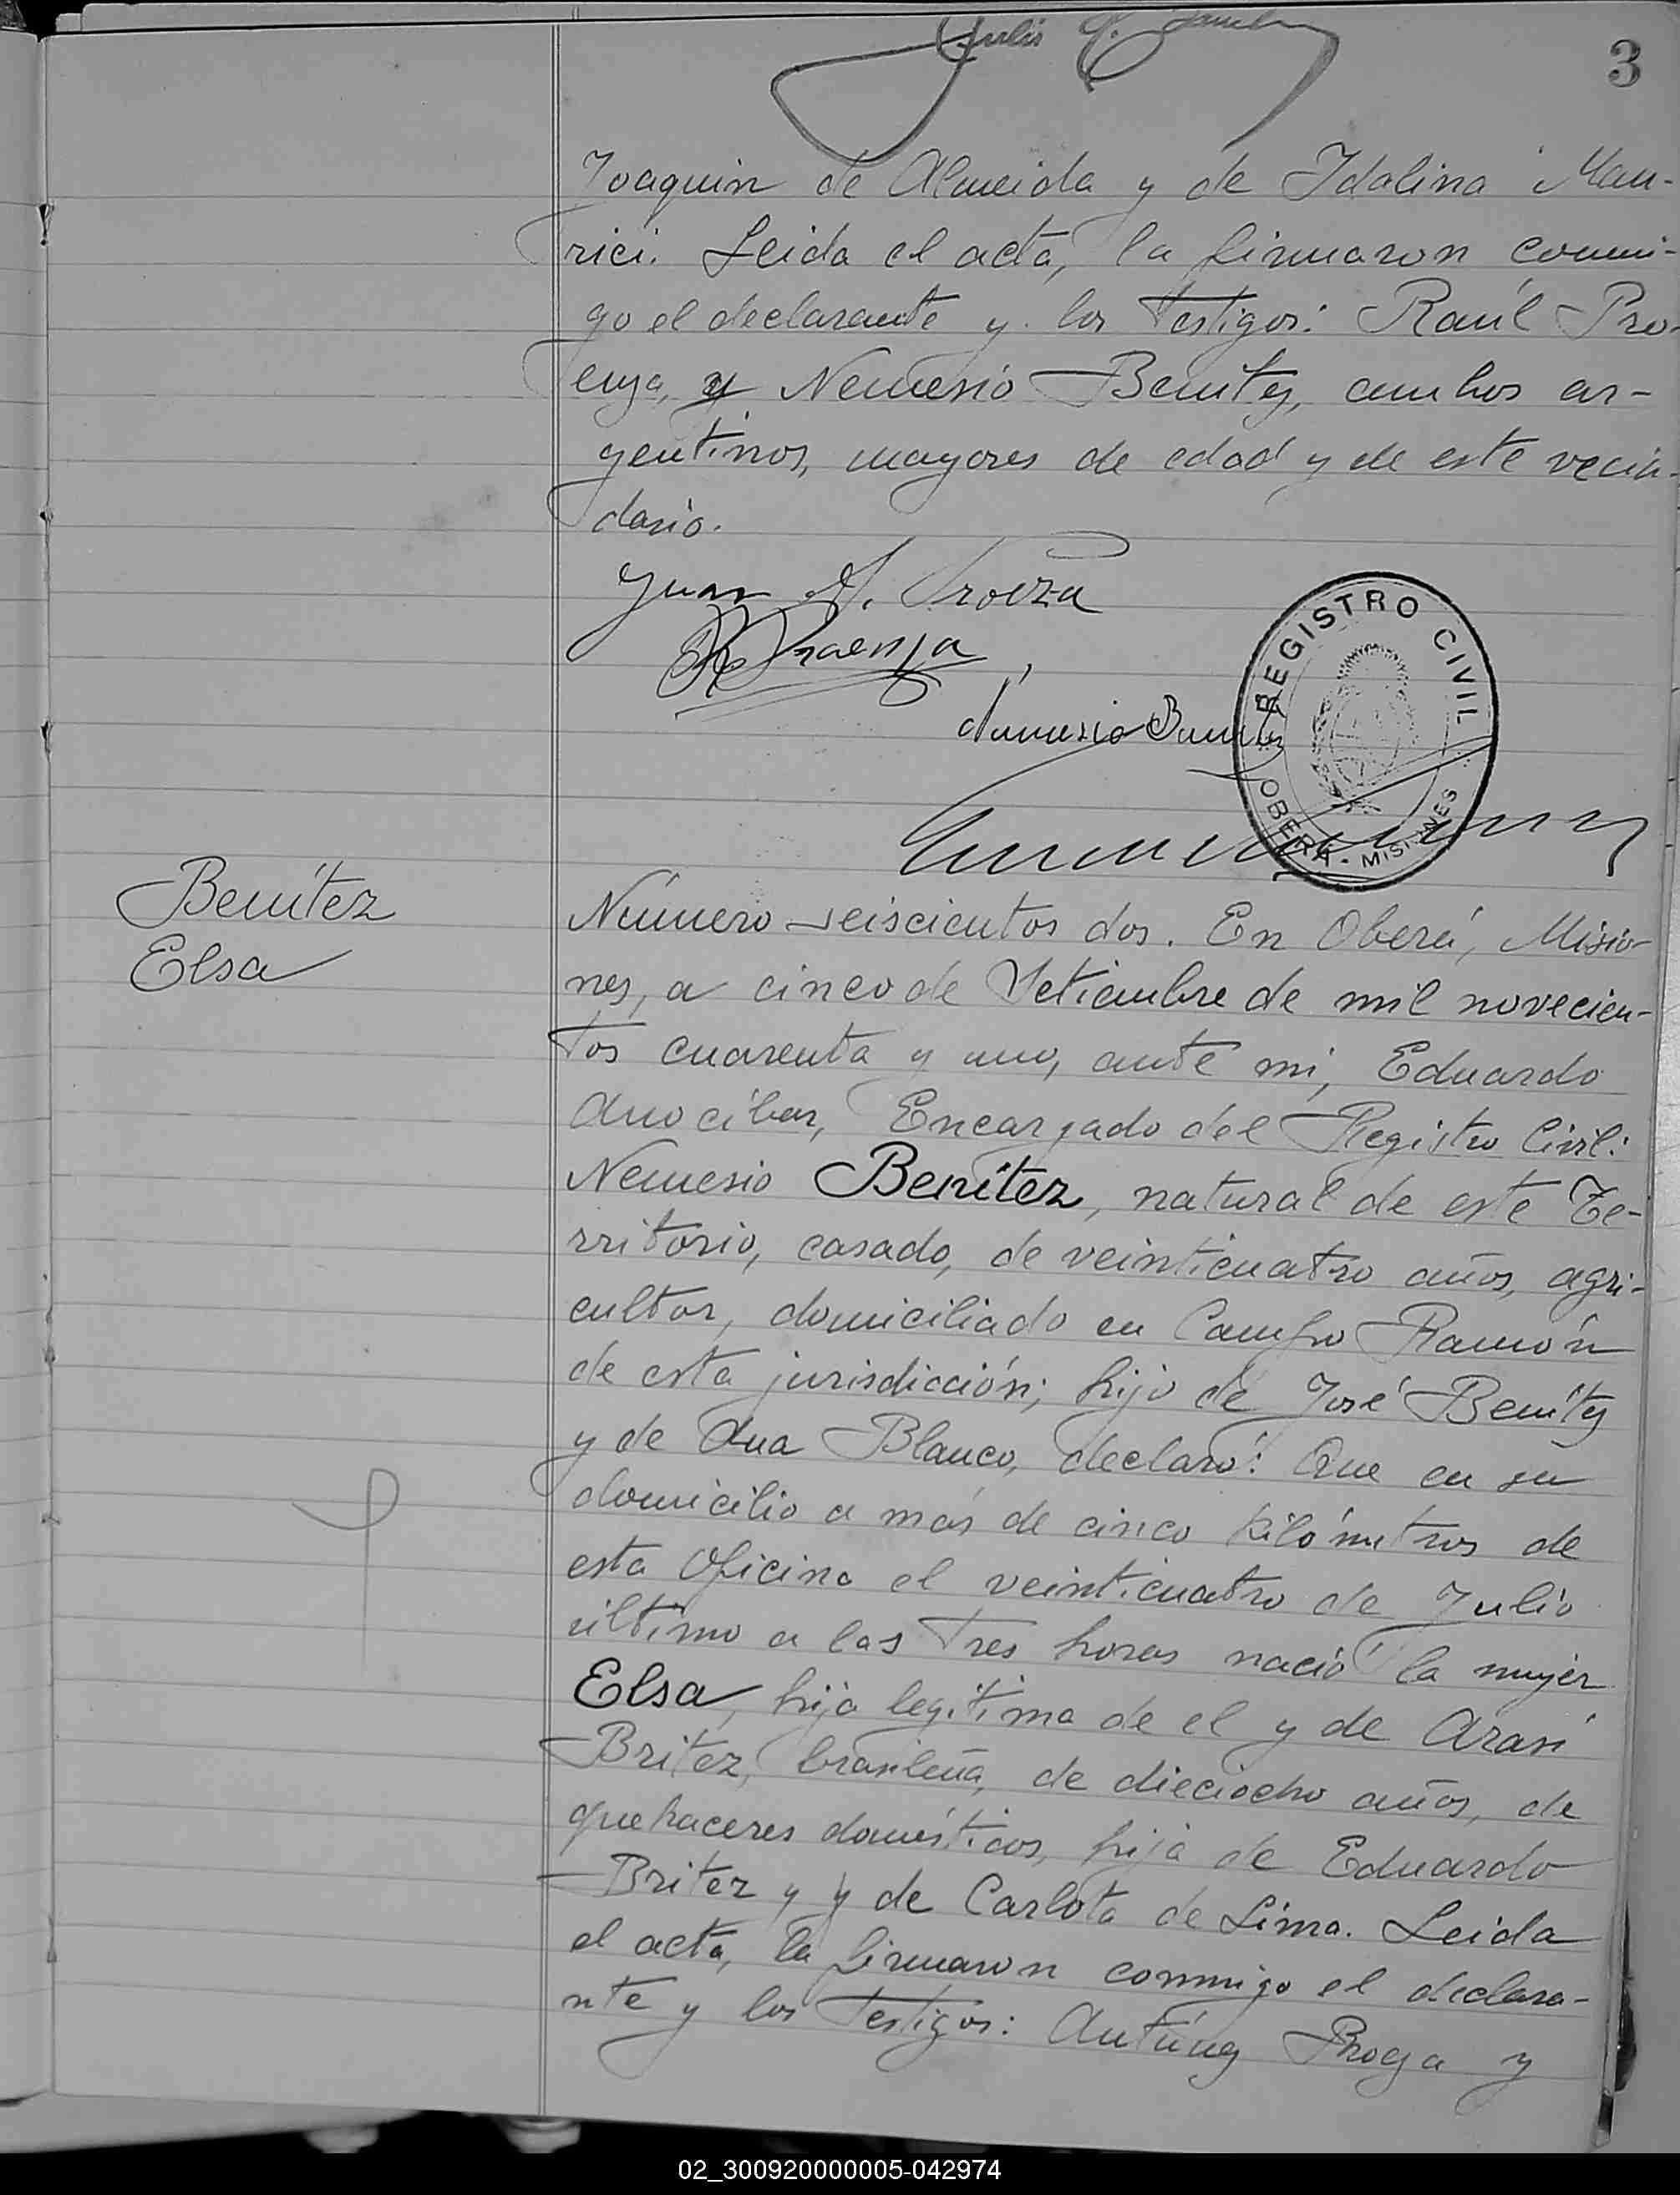 3
Joaquin de Almeida y de Idalina Mau-
rici. Leida el acta, la firmaron conmi-
go el declarante y los testigos: Raúl Pro-
enza, y Nemesio Benitez, ambos ar-
gentinos, mayores de edad y de este vecin-
dario.
Juan
REGISTRO CIVIL
OBERA - MISIONES
Benítez
Elsa
Número seiscientos dos. En Oberá, Misio-
nes, a cinco de Setiembre de mil novecien-
tos cuarenta y uno, ante mi, Eduardo
Anocibar, Encargado del Registro Civil:
Nemesio Benítez, natural de este Te-
rritorio, casado, de veinticuatro años, agri-
cultor, domiciliado en Campo Ramón
de esta jurisdicción; hijo de José Benítez
y de Ana Blanco, declaró: Que en su
domicilio a más de cinco kilómetros de
esta Oficina el veinticuatro de Julio
último a las tres horas nació la mujer
Elsa, hija legitima de el y de Arasi
Britez, brasileña, de dieciocho años, de
quehaceres domésticos, hija de Eduardo
Britez y y de Carlota de Lima. Leida
el acta, la firmaron conmigo el declara-
nte y los testigos: Antúnez y
02_300920000005-042974